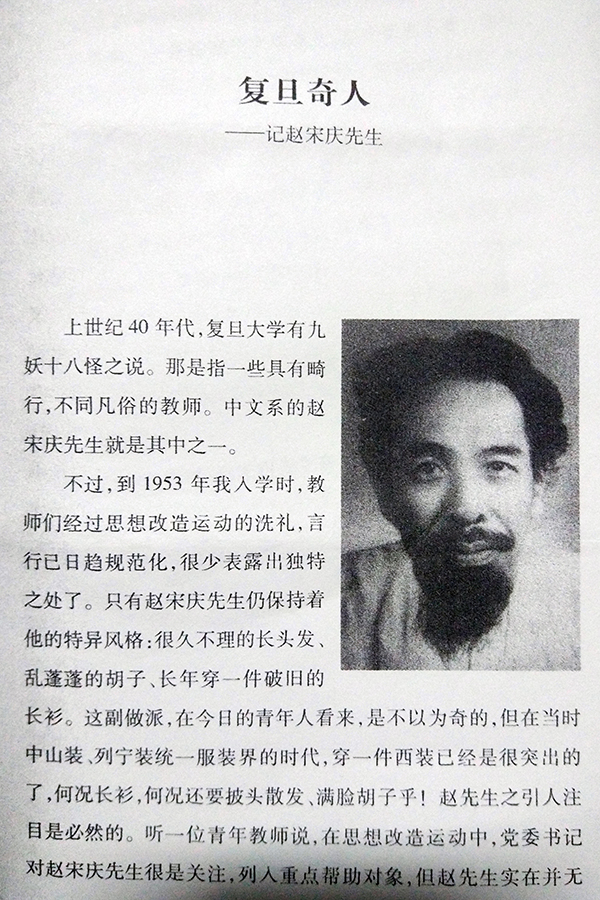 复旦奇人
——记赵宋庆先生
上世纪40年代,复旦大学有九
妖十八怪之说。那是指一些具有畸
行,不同凡俗的教师。中文系的赵
宋庆先生就是其中之一。
不过,到1953年我入学时,教
师们经过思想改造运动的洗礼,言
行已日趋规范化,很少表露出独特
之处了。只有赵宋庆先生仍保持着
他的特异风格:很久不理的长头发、
乱蓬蓬的胡子、长年穿一件破旧的
长衫。这副做派,在今日的青年人看来,是不以为奇的,但在当时
中山装、列宁装统一服装界的时代,穿一件西装已经是很突出的
了,何况长衫,何况还要披头散发、满脸胡子乎!赵先生之引人注
目是必然的。听一位青年教师说,在思想改造运动中,党委书记
对赵宋庆先生很是关注,列入重点帮助对象,但赵先生实在并无